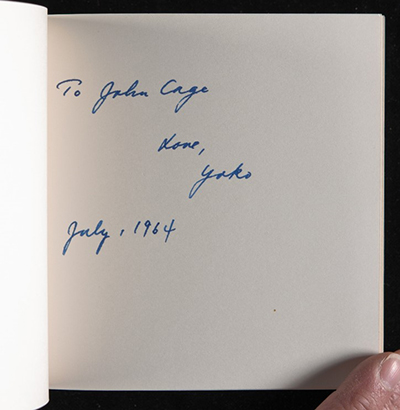 To John Cage
Love,
Yoko
July, 1964